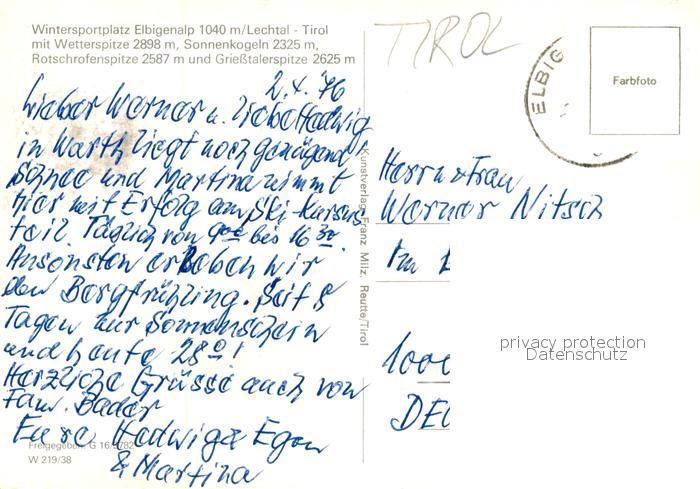 Wintersportplatz Elbigenalp 1040 m/Lechtal - Tirol
mit Wetterspitze 2898 m, Sonnenkogeln 2325 m,
Rotschrofenspitze 2587 m und Grießtalerspitze 2625 m
2.4.'76
Lieber Werner u. liebe Hedwig
in Warth liegt noch genügend
Schnee und Martina nimmt
hier mit Erfolg am Ski-Kursus
teil. Täglich von 9 00 bis 16 30.
Ansonsten erleben wir
den Bergfrühling. Seit 8
Tagen nur Sonnenschein
und heute 28°!
Herzliche Grüsse auch von
Fam. Bader
Eure Hedwig & Egon
& Martina
Freigegeben G 16/
W 219/38
Kunstverlag Franz Milz, Reutte/Tirol
TIROL
ELBIG
Farbfoto
Herrn u Frau
Werner Nitsch
Im
1000
privacy protection
Datenschutz